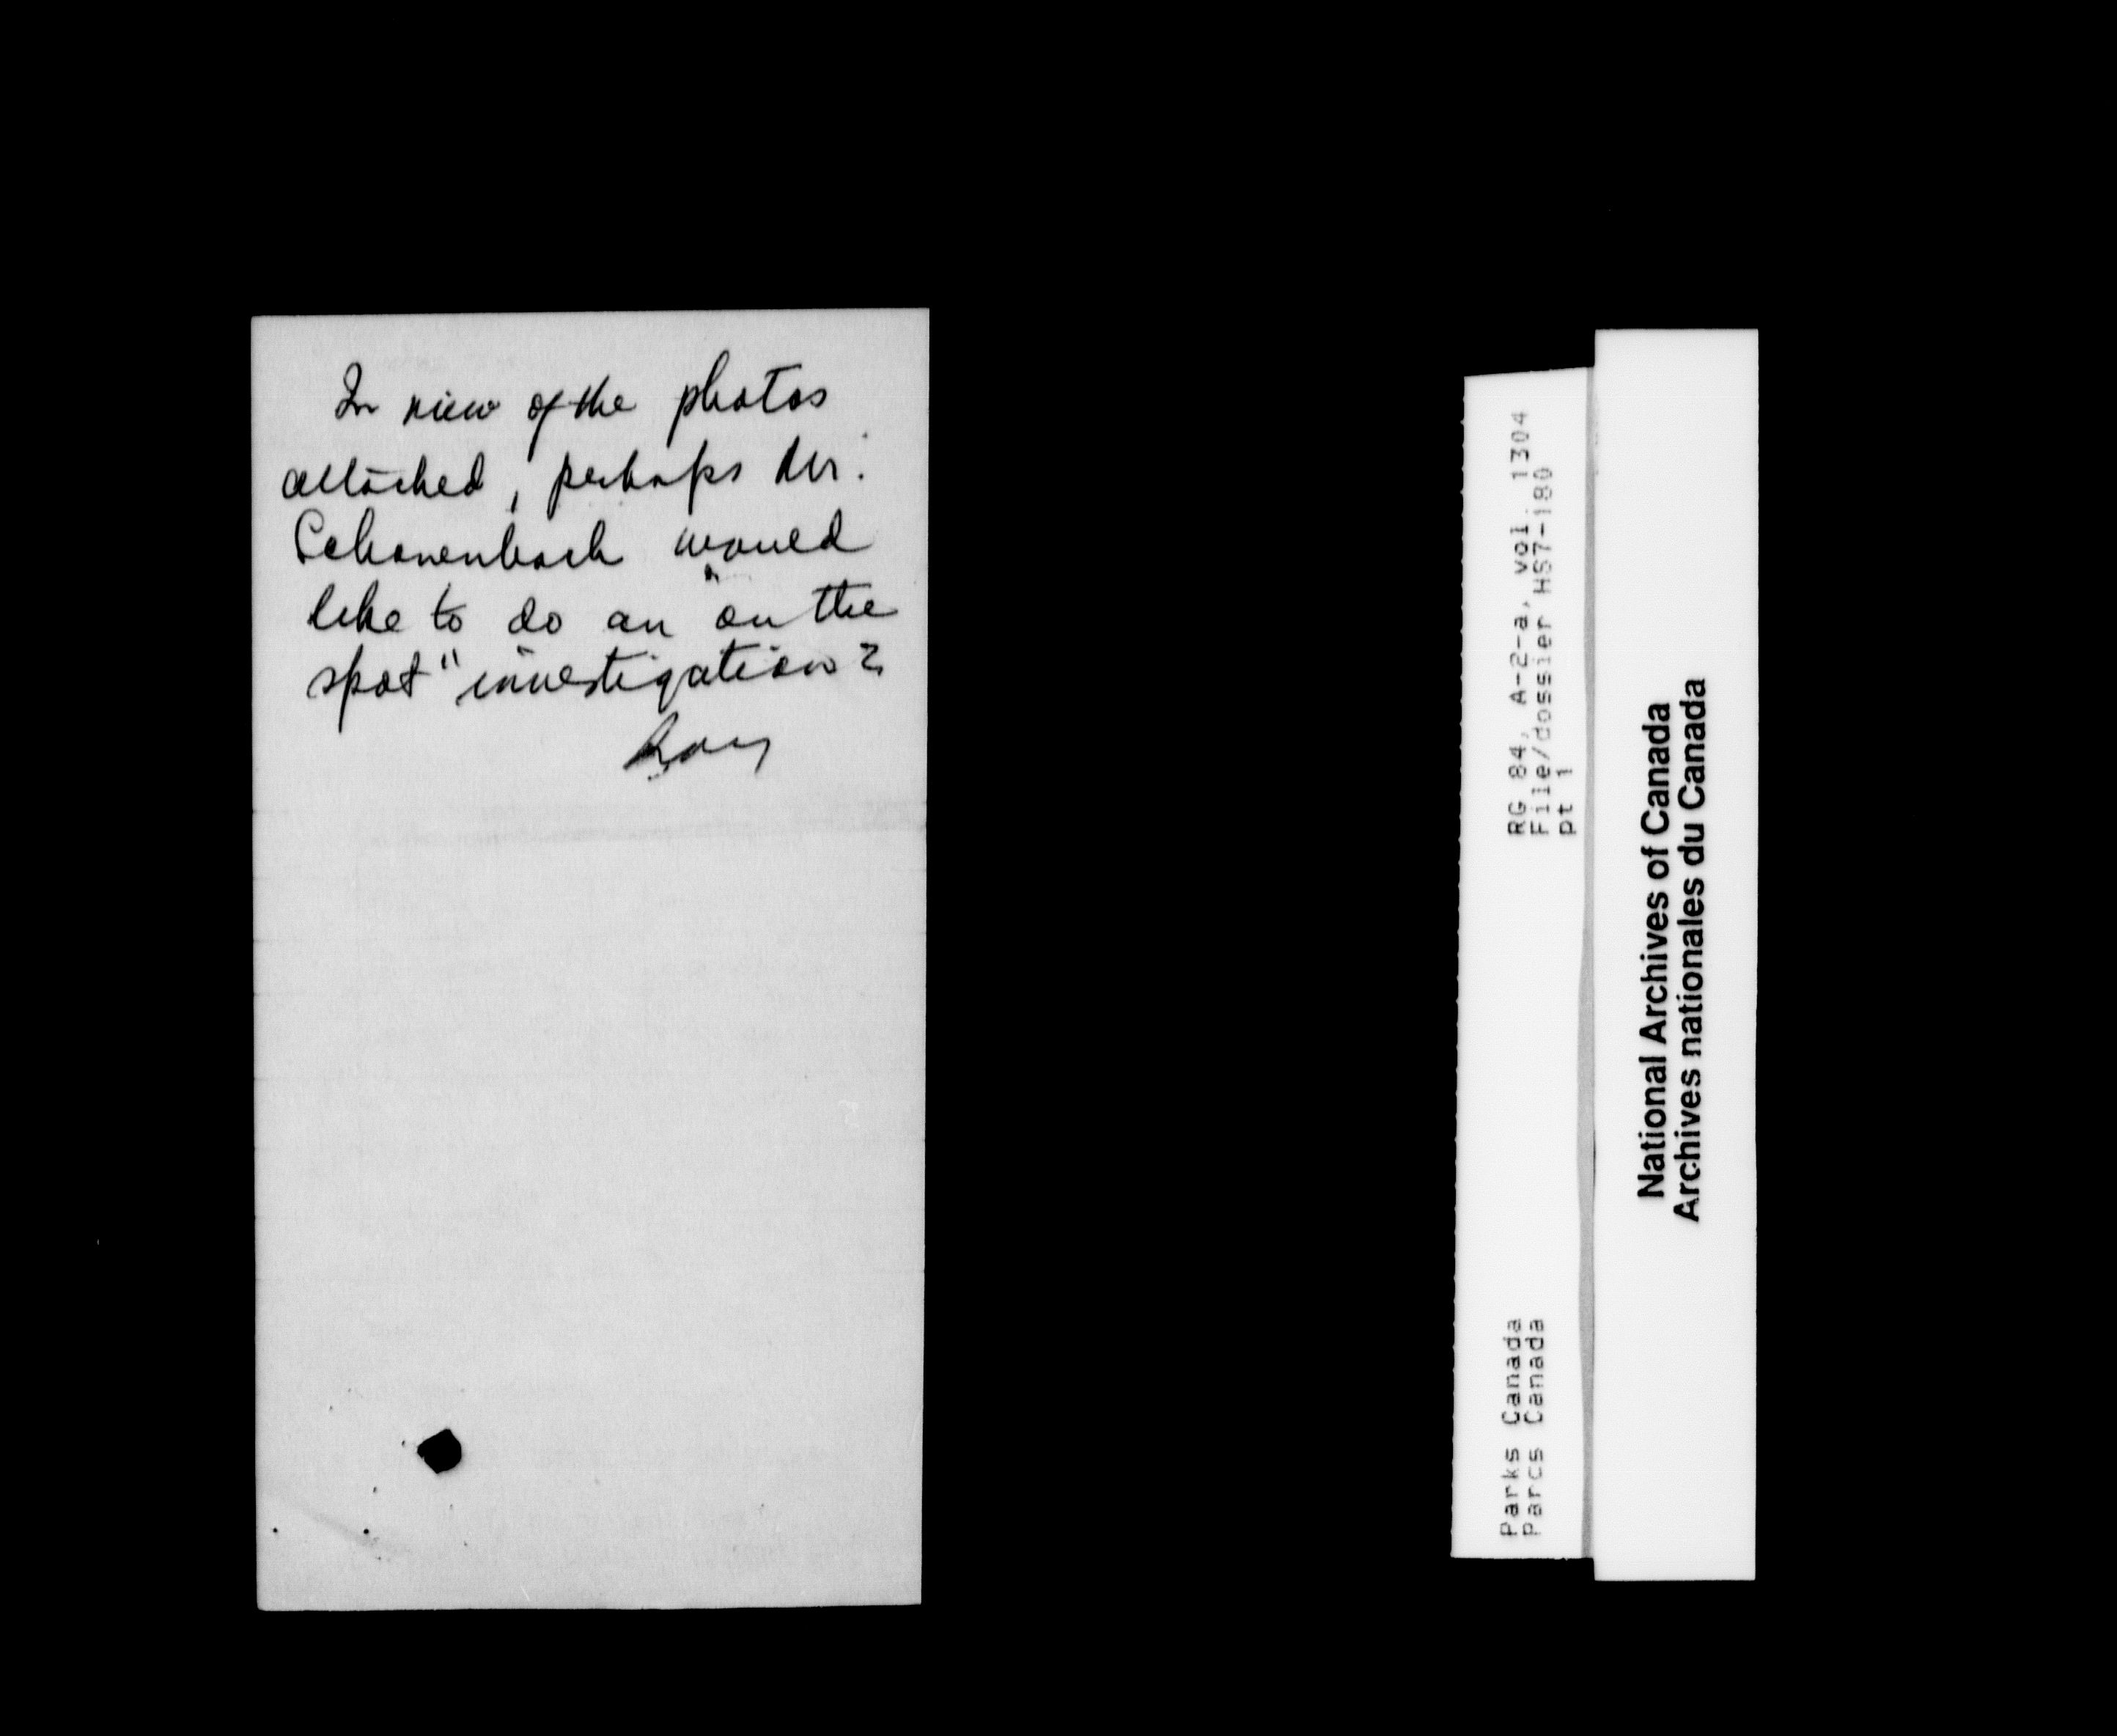 In view of the photos
attached, perhaps Mr.
Schonenbach would
like to do an "on the
spot" investigation?
Roy
RG 84, A-2-a, vol. 1304
File/dossier HS7-180
pt 1
Parks Canada
Parcs Canada
National Archives of Canada
Archives nationales du Canada